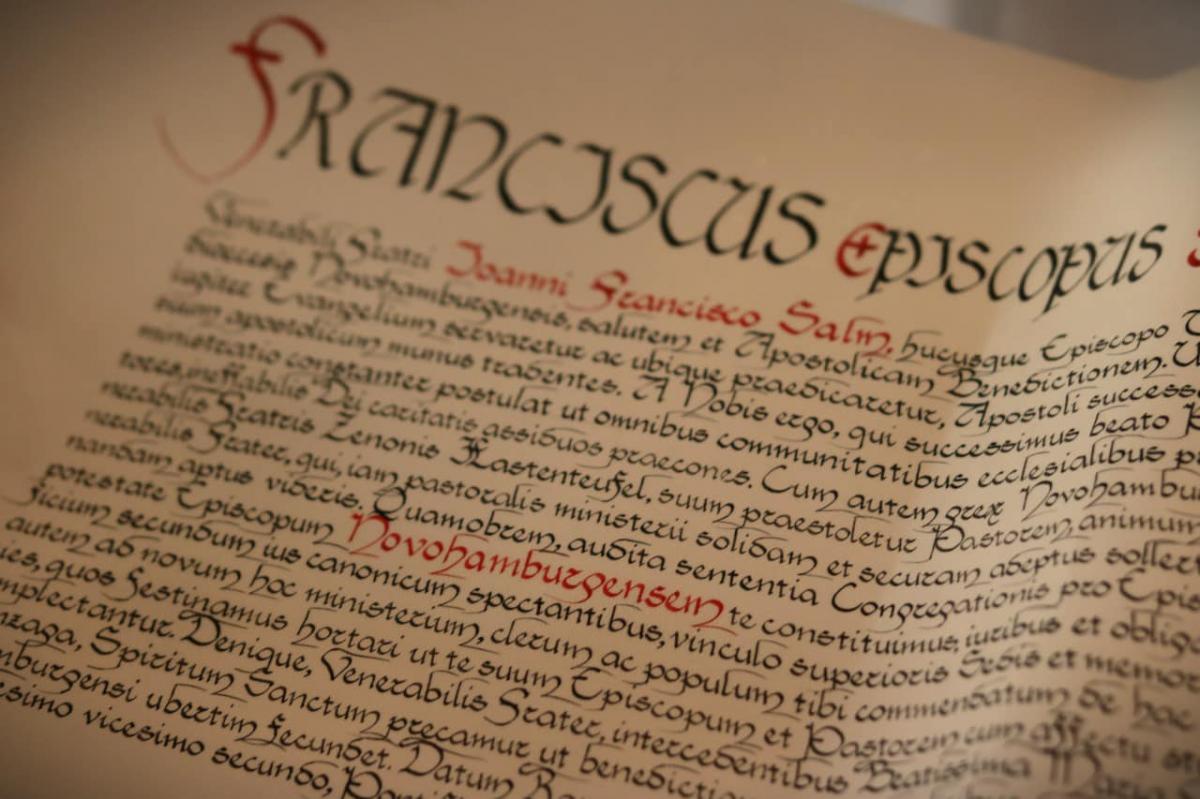 FRANCISCUS EPISCOPUS
Venerabili Fratri Ioanni Francisco Salm, hucusque Episcopo
dioecesis Novohamburgensis, salutem et Apostolicam Benedictionem.
iugiter Evangelium servaretur ac ubique praedicaretur, Apostoli
suum apostolicum munus tradentes. A Nobis ergo, qui successimus beato
ministratio constanter postulat ut omnibus communitatibus ecclesialibus
ineffabilis Dei caritatis assiduos praecones. Cum autem grex
nerabilis Fratris Zenonis Hastenteufel, suum praestoletur Pastorem, animum
nerabilis Frater, qui, iam pastoralis ministerii solidam et securam adeptus
nandam aptus videris. Quamobrem, audita sententia Congregationis pro
potestate Episcopum Novohamburgensem te constituimus, iuribus et
ficium secundum ius canonicum spectantibus, vinculo superioris Sedis et
autem ad novum hoc ministerium, clerum ac populum tibi commendatum de hac
quos festinamus hortari ut te suum Episcopum et Pastorem cum affectu
mplectantur. Denique, Venerabilis Frater, intercedentibus Beatissima Maria
nzaga, Spiritum Sanctum precamur ut
mburgensi ubertim fecundet. Datum
simo vicesimo secundo,